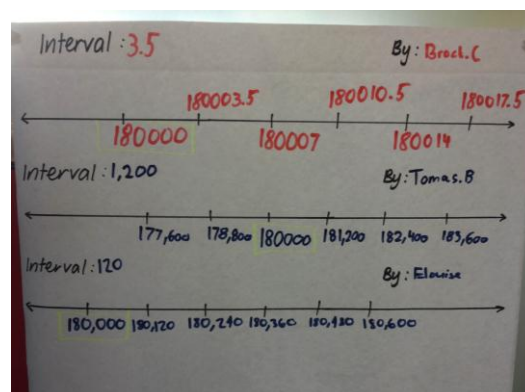 Interval : 3.5 By : Brock.C
180003.5 180010.5 180017.5
180000 180007 180014
Interval : 1,200 By : Tomas.B
177,600 178,800 180000 181,200 182,400 183,600
Interval : 120 By : Elouise
180,000 180,120 180,240 180,360 180,480 180,600